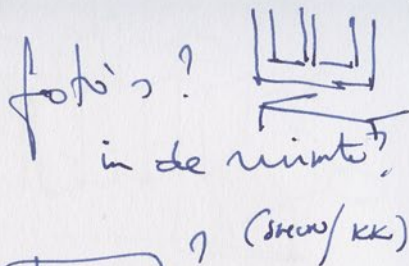 foto's?
in de ruimte?
? (SHOW/KK)